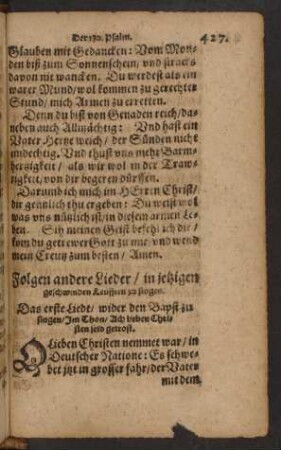 Der 130. Psalm. 427.
Glauben mit Gedancken: Vom Mon-
den biß zum Sonnenschein, vnd sie als
davon nit wancken. Du werdest als ein
warer Mund/ wol kommen zu gerechter
Stund/ mich Armen zu erretten.
Denn du bist von Genaden reich/ da-
neben auch Allmächtig: Vnd hast ein
Vater Hertze weich/ der Sünden nicht
indechtig. Vnd thust vns mehr Barm-
hertzigkeit/ als wir wol in der Traw-
rigkeit, von dir begeren dürffen.
Darumb ich mich im HErren Christ/
dir gentzlich thu ergeben: Du weist wol
was vns nützlich ist/ in diesem armen Le-
ben. Sih meinen Geist befehl ich dir/
kom du getrewer Gott zu mir/ vnd wend
mein Creutz zum besten/ Amen.
Folgen andere Lieder/ in jetzigen
geschwinden Leufften zu singen.
Das erste Liedt/ wider den Bapst zu
singen/ Im Thon/ Ach lieben Chri-
sten seid getrost.
O Lieben Christen nemmet war/ in
Deutscher Natione: Es schwe-
bet jtzt in grosser fahr/ der Vater
mit dem